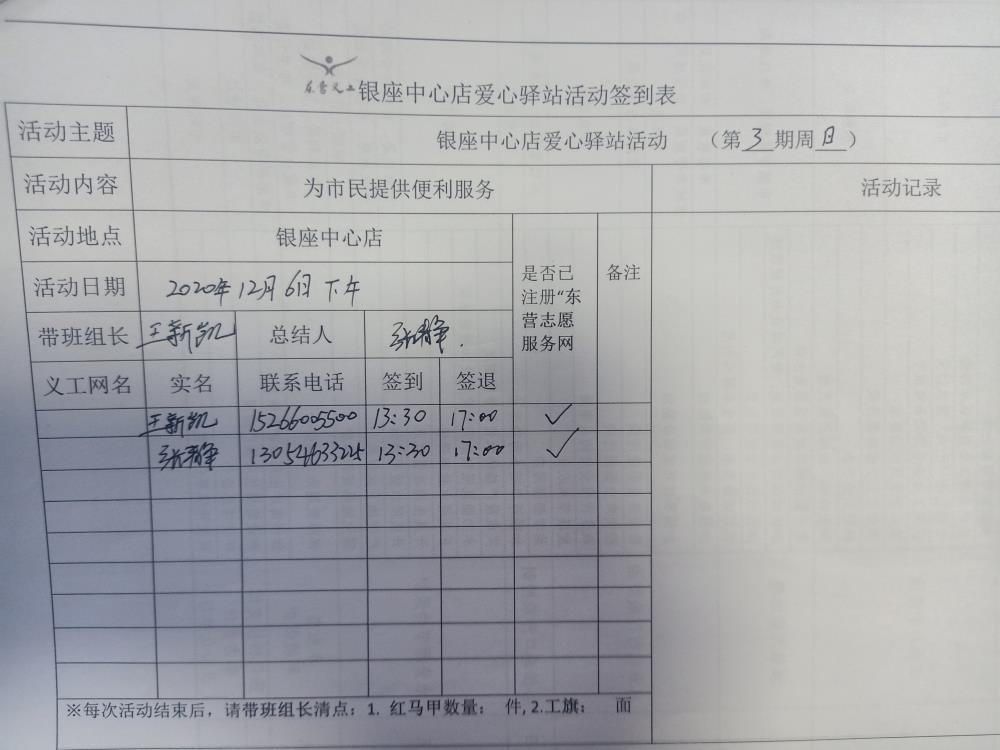 东营义工 银座中心店爱心驿站活动签到表
活动主题 银座中心店爱心驿站活动 （第3期周日）
活动内容 为市民提供便利服务 活动记录
活动地点 银座中心店 是否已注册“东营志愿服务网 备注
活动日期 2020年12月6日下午
带班组长 王新凯 总结人 张静.
义工网名 实名 联系电话 签到 签退
王新凯 15266005500 13:30 17:00 ✓
张静 13054633225 13:30 17:00 ✓
※每次活动结束后，请带班组长清点：1. 红马甲数量： 件, 2.工旗： 面